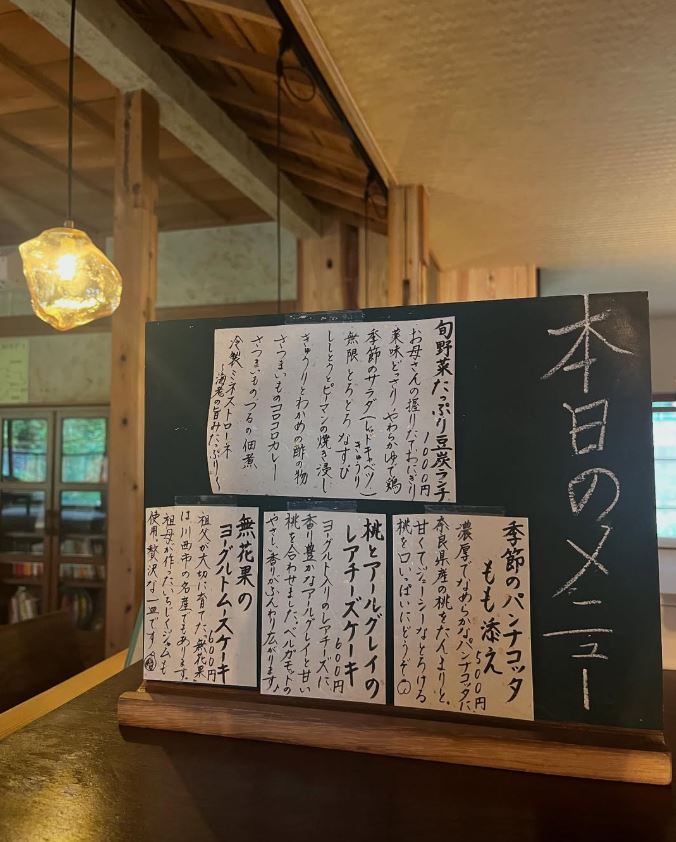 本日のメニュー
旬野菜たっぷり豆炭ランチ
1000円
お母さんの握りたておにぎり
薬味どっさりやわらかゆで鶏
季節のサラダ(レッドキャベツ)
きゅうり
無限とろとろなすび
ししとうとピーマンの焼き浸し
きゅうりとわかめの酢の物
さつまいものコロコロカレー
さつまいものつるの佃煮
冷製ミネストローネ
〜海老の旨みたっぷり〜
季節のパンナコッタ
もも添え
500円
濃厚でなめらかなパンナコッタに
奈良県産の桃をたんまりと。
甘くてジューシーなとろける
桃をお口いっぱいにどうぞ
桃とアールグレイの
レアチーズケーキ
600円
ヨーグルト入りのレアチーズに
香り豊かなアールグレイと甘い
桃を合わせました。ベルガモットの
やさしい香りがふんわり広がります♪
無花果の
ヨーグルトムースケーキ
600円
祖父が大切に育てた"無花果"
は川西市の名産でもあります。
祖母が作ったいちじくジャムも
使用。贅沢な一皿です